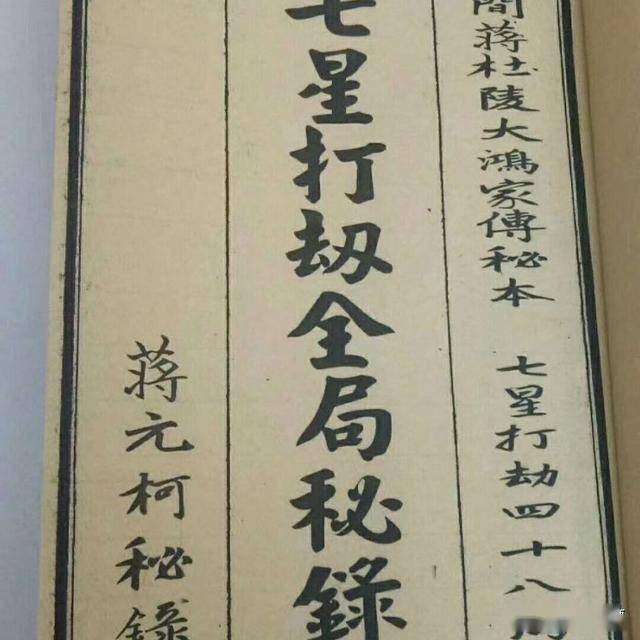 蔣杜陵大鴻家傳秘本 七星打劫四十八
七星打劫全局秘錄
蔣元柯秘錄